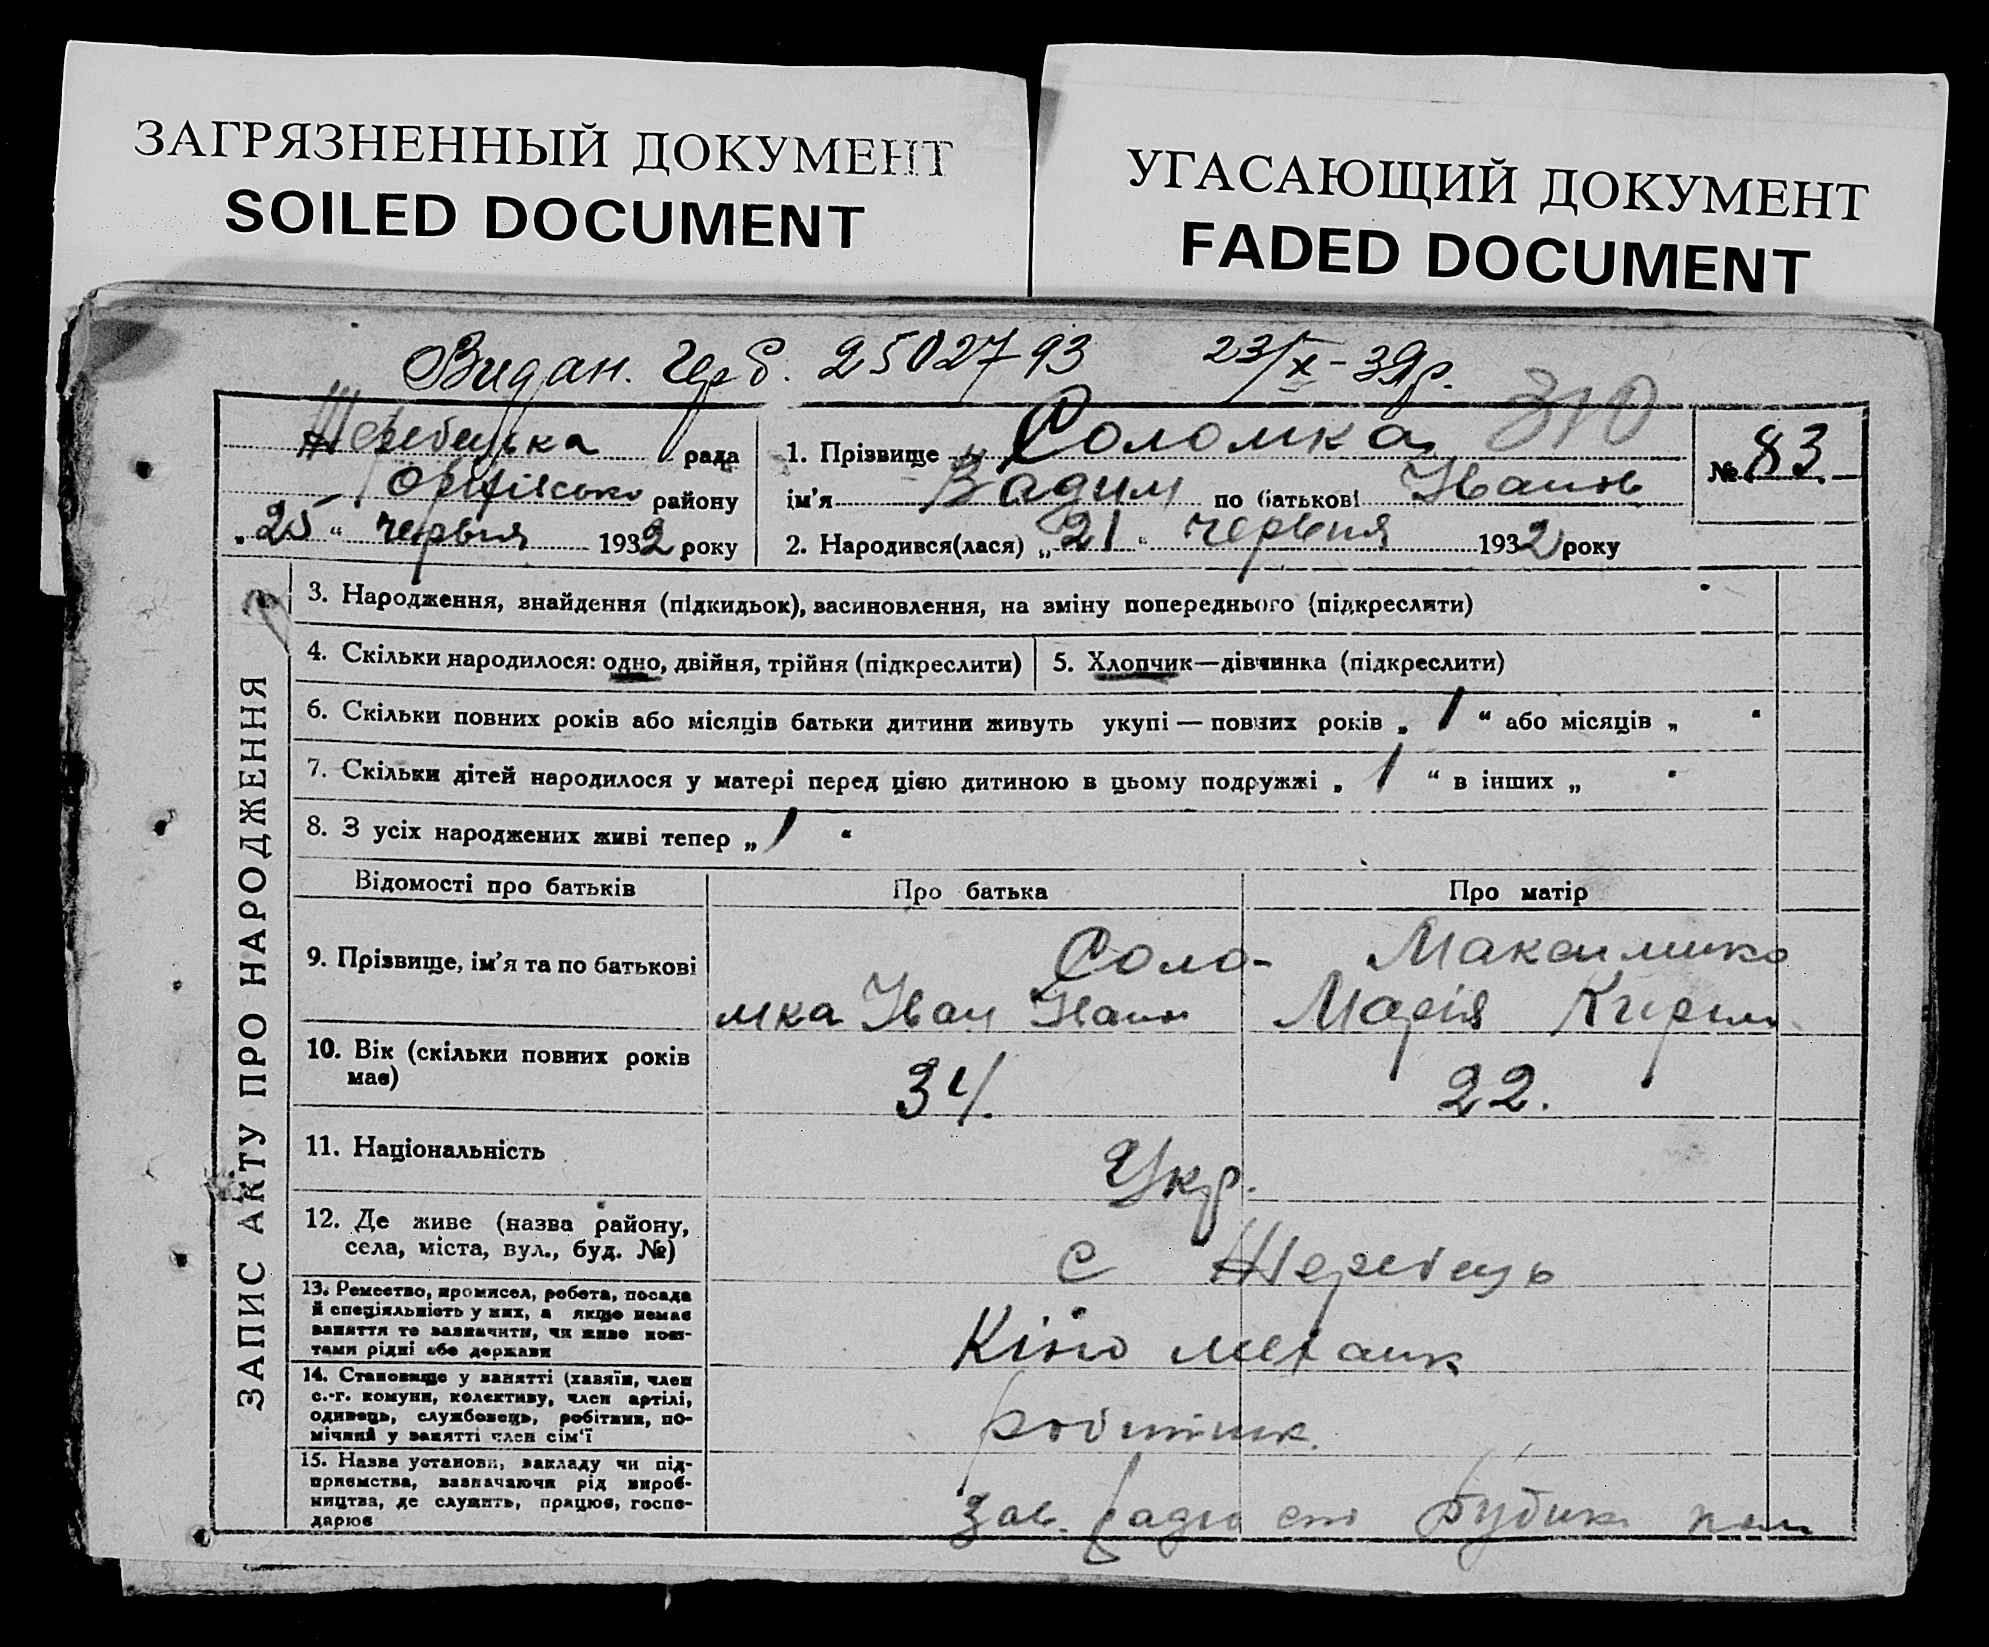 ЗАГРЯЗНЕННЫЙ ДОКУМЕНТ
SOILED DOCUMENT
УГАСАЮЩИЙ ДОКУМЕНТ
FADED DOCUMENT
Видан. Герб. 2502793 23/X-39р.
310
Жеребецька рада
району
„25“ червня 1932 року
1. Прізвище Соломка
ім'я Вадим по батькові Іванов
2. Народився(лася) „21“ червня 1932 року
№ 83.
ЗАПИС АКТУ ПРО НАРОДЖЕННЯ
3. Народження, знайдення (підкидьок), васиновлення, на зміну попереднього (підкреслити)
4. Скільки народилося: одно, двійня, трійня (підкреслити)
5. Хлопчик—дівчинка (підкреслити)
6. Скільки повних років або місяців батьки дитини живуть укупі — повних років „ 1 “ або місяців „ “
7. Скільки дітей народилося у матері перед цією дитиною в цьому подружжі „ 1 “ в інших „ “
8. З усіх народжених живі тепер „ 1 “
Відомості про батьків Про батька Про матір
9. Прізвище, ім'я та по батькові
Соло-
мка Іван Іванов
Максимико
Марія Кирил
10. Вік (скільки повних років
має)
34. 22.
11. Національність
Укр.
12. Де живе (назва району,
села, міста, вул., буд. №)
с Жеребець
13. Ремество, промисел, робота, посада
й спеціяльність у них, а якщо немає
заняття то зазначити, чи живе кош-
тами рідні або держави
Кіно механик
14. Становище у занятті (хазяїн, член
с.-г. комуни, колективу, член артілі,
одинець, службовець, робітник, по-
мічний у занятті член сім'ї
робітник.
15. Назва установи, закладу чи під-
приємства, зазначаючи рід вироб-
ництва, де служить, працює, госпо-
дарює
Зав. радио